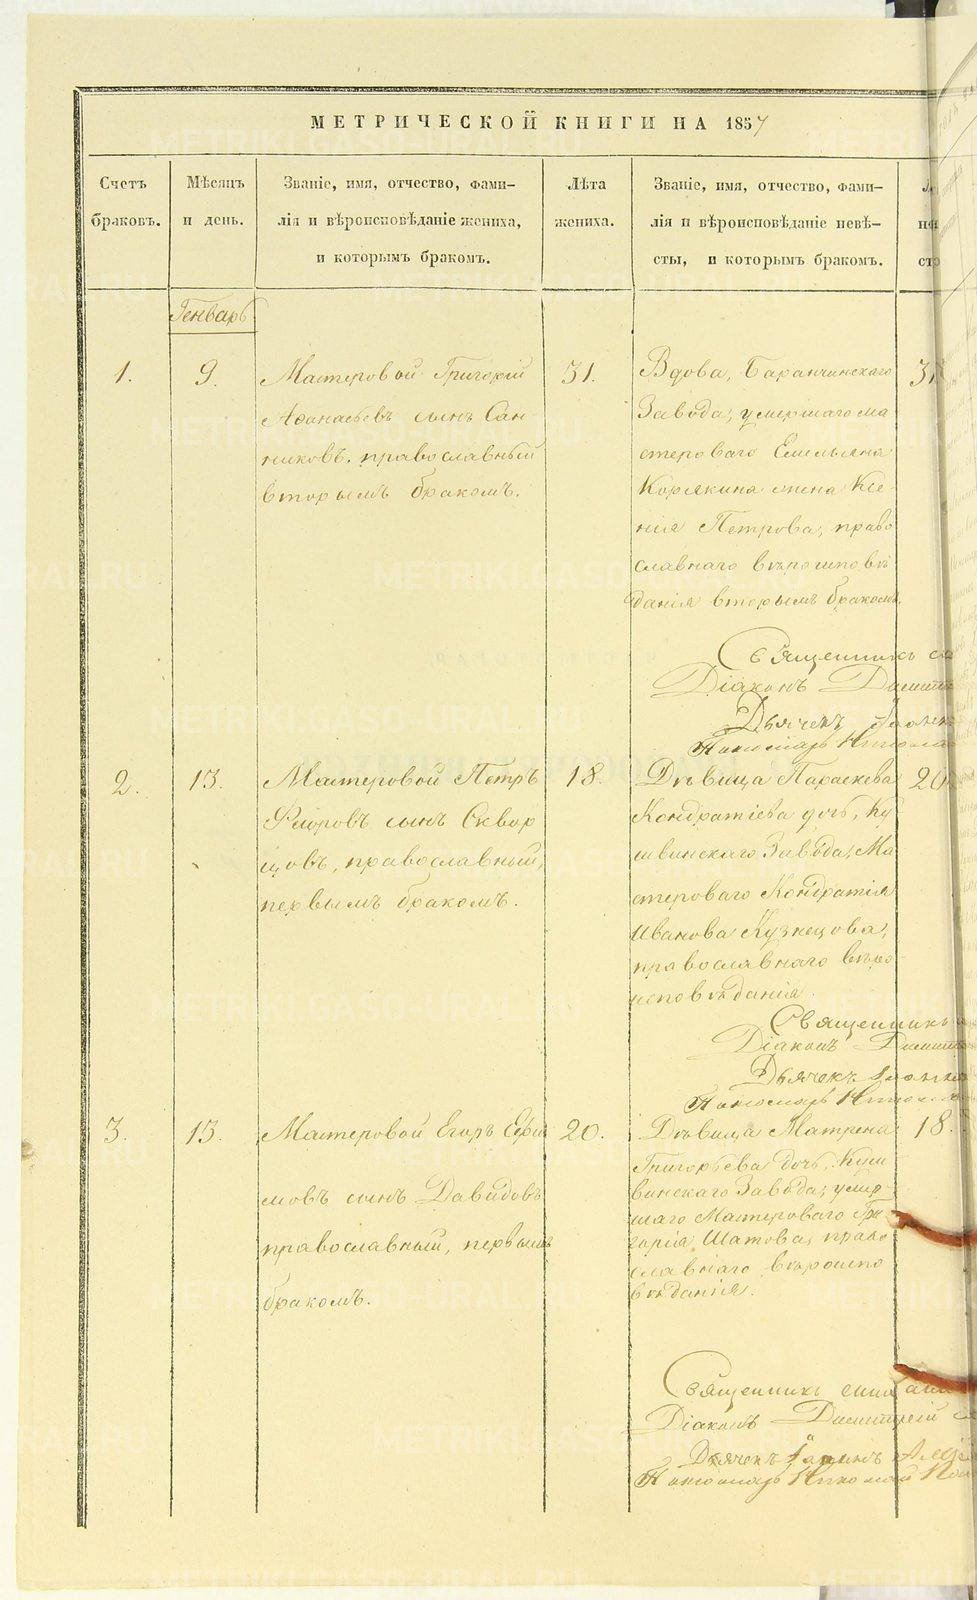 МЕТРИЧЕСКОЙ КНИГИ НА 1857
Счетъ
браковъ.
Мѣсяцъ
и день.
Званіе, имя, отчество, фами-
лія и вѣроисповѣданіе жениха,
и которымъ бракомъ.
Лѣта
жениха.
Званіе, имя, отчество, фами-
лія и вѣроисповѣданіе невѣ-
сты, и которымъ бракомъ.
Генварь.
1.
9.
Мастеровой Григорій
Аѳанасьевъ сынъ Сан-
никовъ, православный
вторымъ бракомъ.
31.
Вдова, Баранчинскаго
Завода, умершаго ма
стероваго Емельяна
Корякина жена Ксе-
нія Петрова, право
славнаго вѣроисповѣ
данія вторымъ бракомъ.
31
Священникъ
Діаконъ Димит
Дьячекъ
Пономарь Никола
2.
13.
Мастеровой Петръ
Флоровъ сынъ Сквор
цовъ, православный,
первымъ бракомъ.
18.
Дѣвица Параскева
Кондратіева дочь, Ку
швинскаго Завода, Ма
стероваго Кондратія
Иванова Кузнецова,
православнаго вѣро-
исповѣданія.
20
Священникъ
Діаконъ Димит
Дьячекъ
Пономарь Никола
3.
13.
Мастеровой Егоръ Ефи
мовъ сынъ Давыдовъ
православный, первымъ
бракомъ.
20.
Дѣвица Матрена
Григорьева дочь, Куш
винскаго Завода, умер-
шаго Мастероваго Гри
горія Шатова, право
славнаго вѣроиспо
вѣданія.
18.
Священникъ
Діаконъ Димитрій
Дьячекъ
Пономарь Николай
METRIKI.GASO-URAL.RU